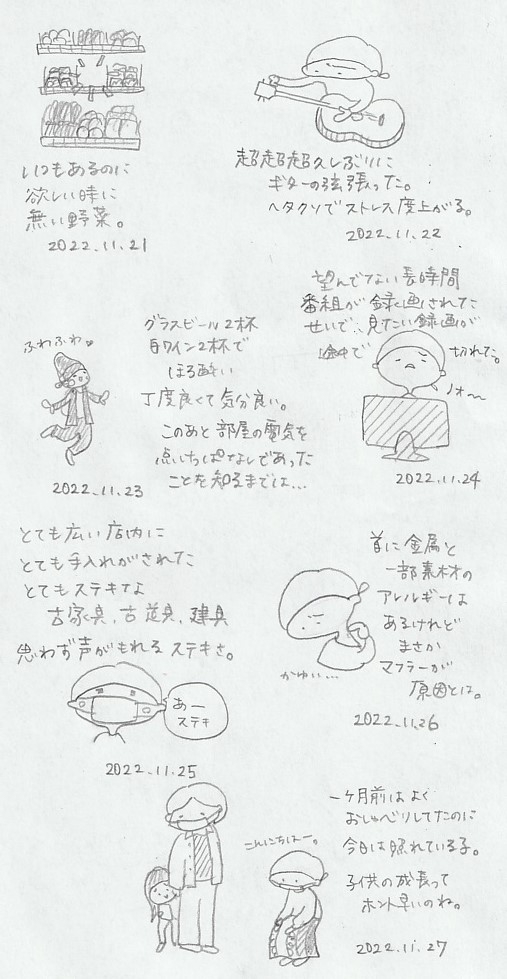 いつもあるのに
欲しい時に
無い野菜。
2022.11.21
超超超久しぶりに
ギターの弦張った。
ヘタクソでストレス度上がる。
2022.11.22
ふわふわ。
グラスビール2杯
白ワイン2杯で
ほろ酔い
丁度良くて気分良い。
このあと部屋の電気を
点いちぱなしであった
ことを知るまでは...
2022.11.23
望んでない長時間
番組が録画されてた
せいで、見たい録画が
途中で
切れてた。
ノォ〜
2022.11.24
とても広い店内に
とても手入れがされてた
とてもステキでよ
古家具、古道具、建具
思わず声がもれるステキさ。
あー
ステキ
2022.11.25
首に金属と
一部素材の
アレルギーは
あるけれど
まさか
マフラーが
原因とは。
かゆい...
2022.11.26
こんにちはー。
一ケ月前はよく
おしゃべりしてたのに
今日は照れている子。
子供の成長って
ホント早いのね。
2022.11.27